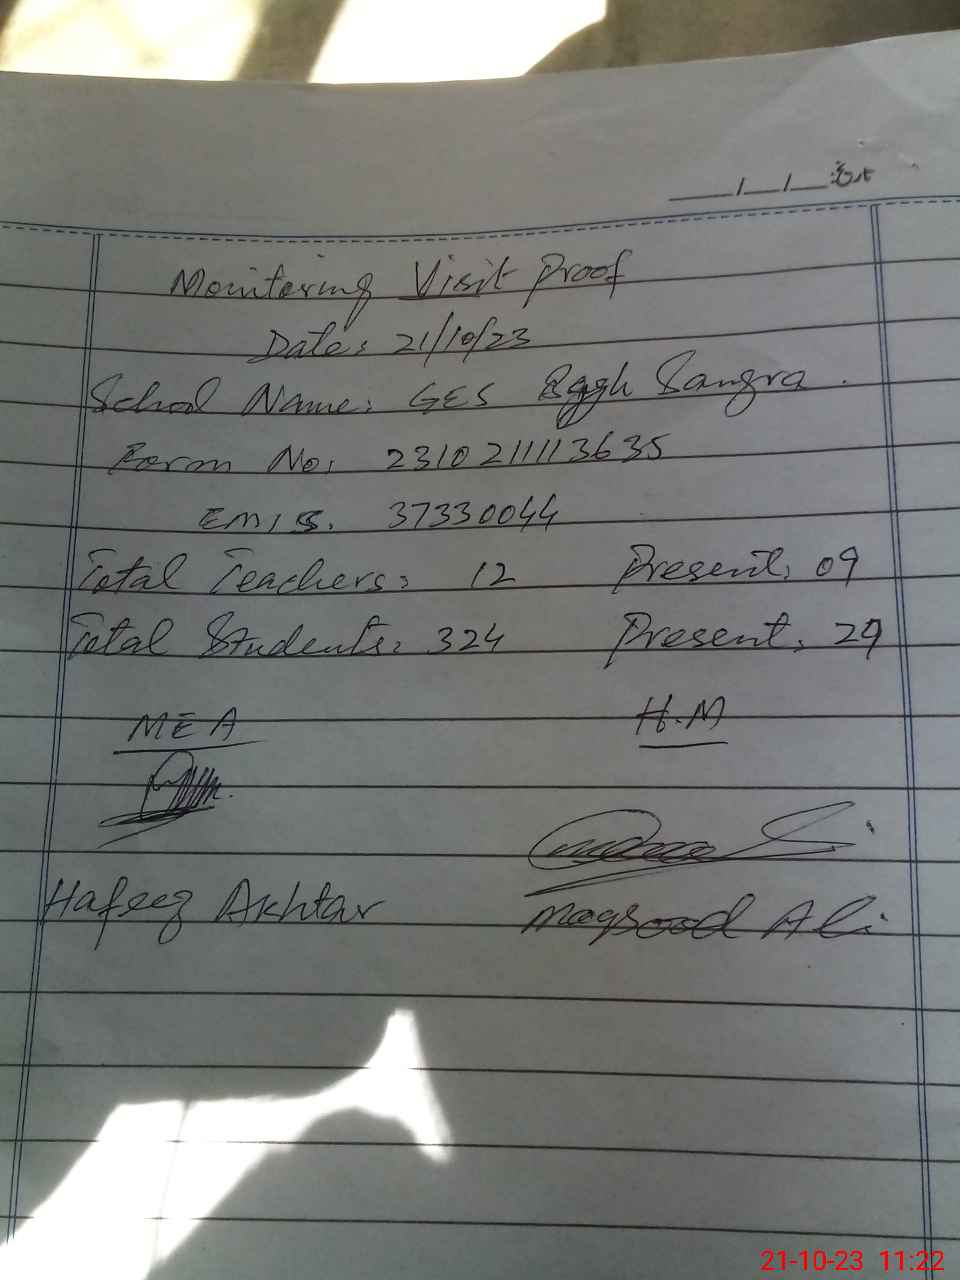 __/__/__ تاریخ
Monitoring Visit Proof
Date: 21/10/23
School Name: GES Bagh Sangra.
Form No: 2310211113635
EMIS. 37330044
Total Teachers: 12 Present: 09
Total Students: 324 Present: 29
MEA H.M
Hafeez Akhtar Maqsood Ali
21-10-23 11:22